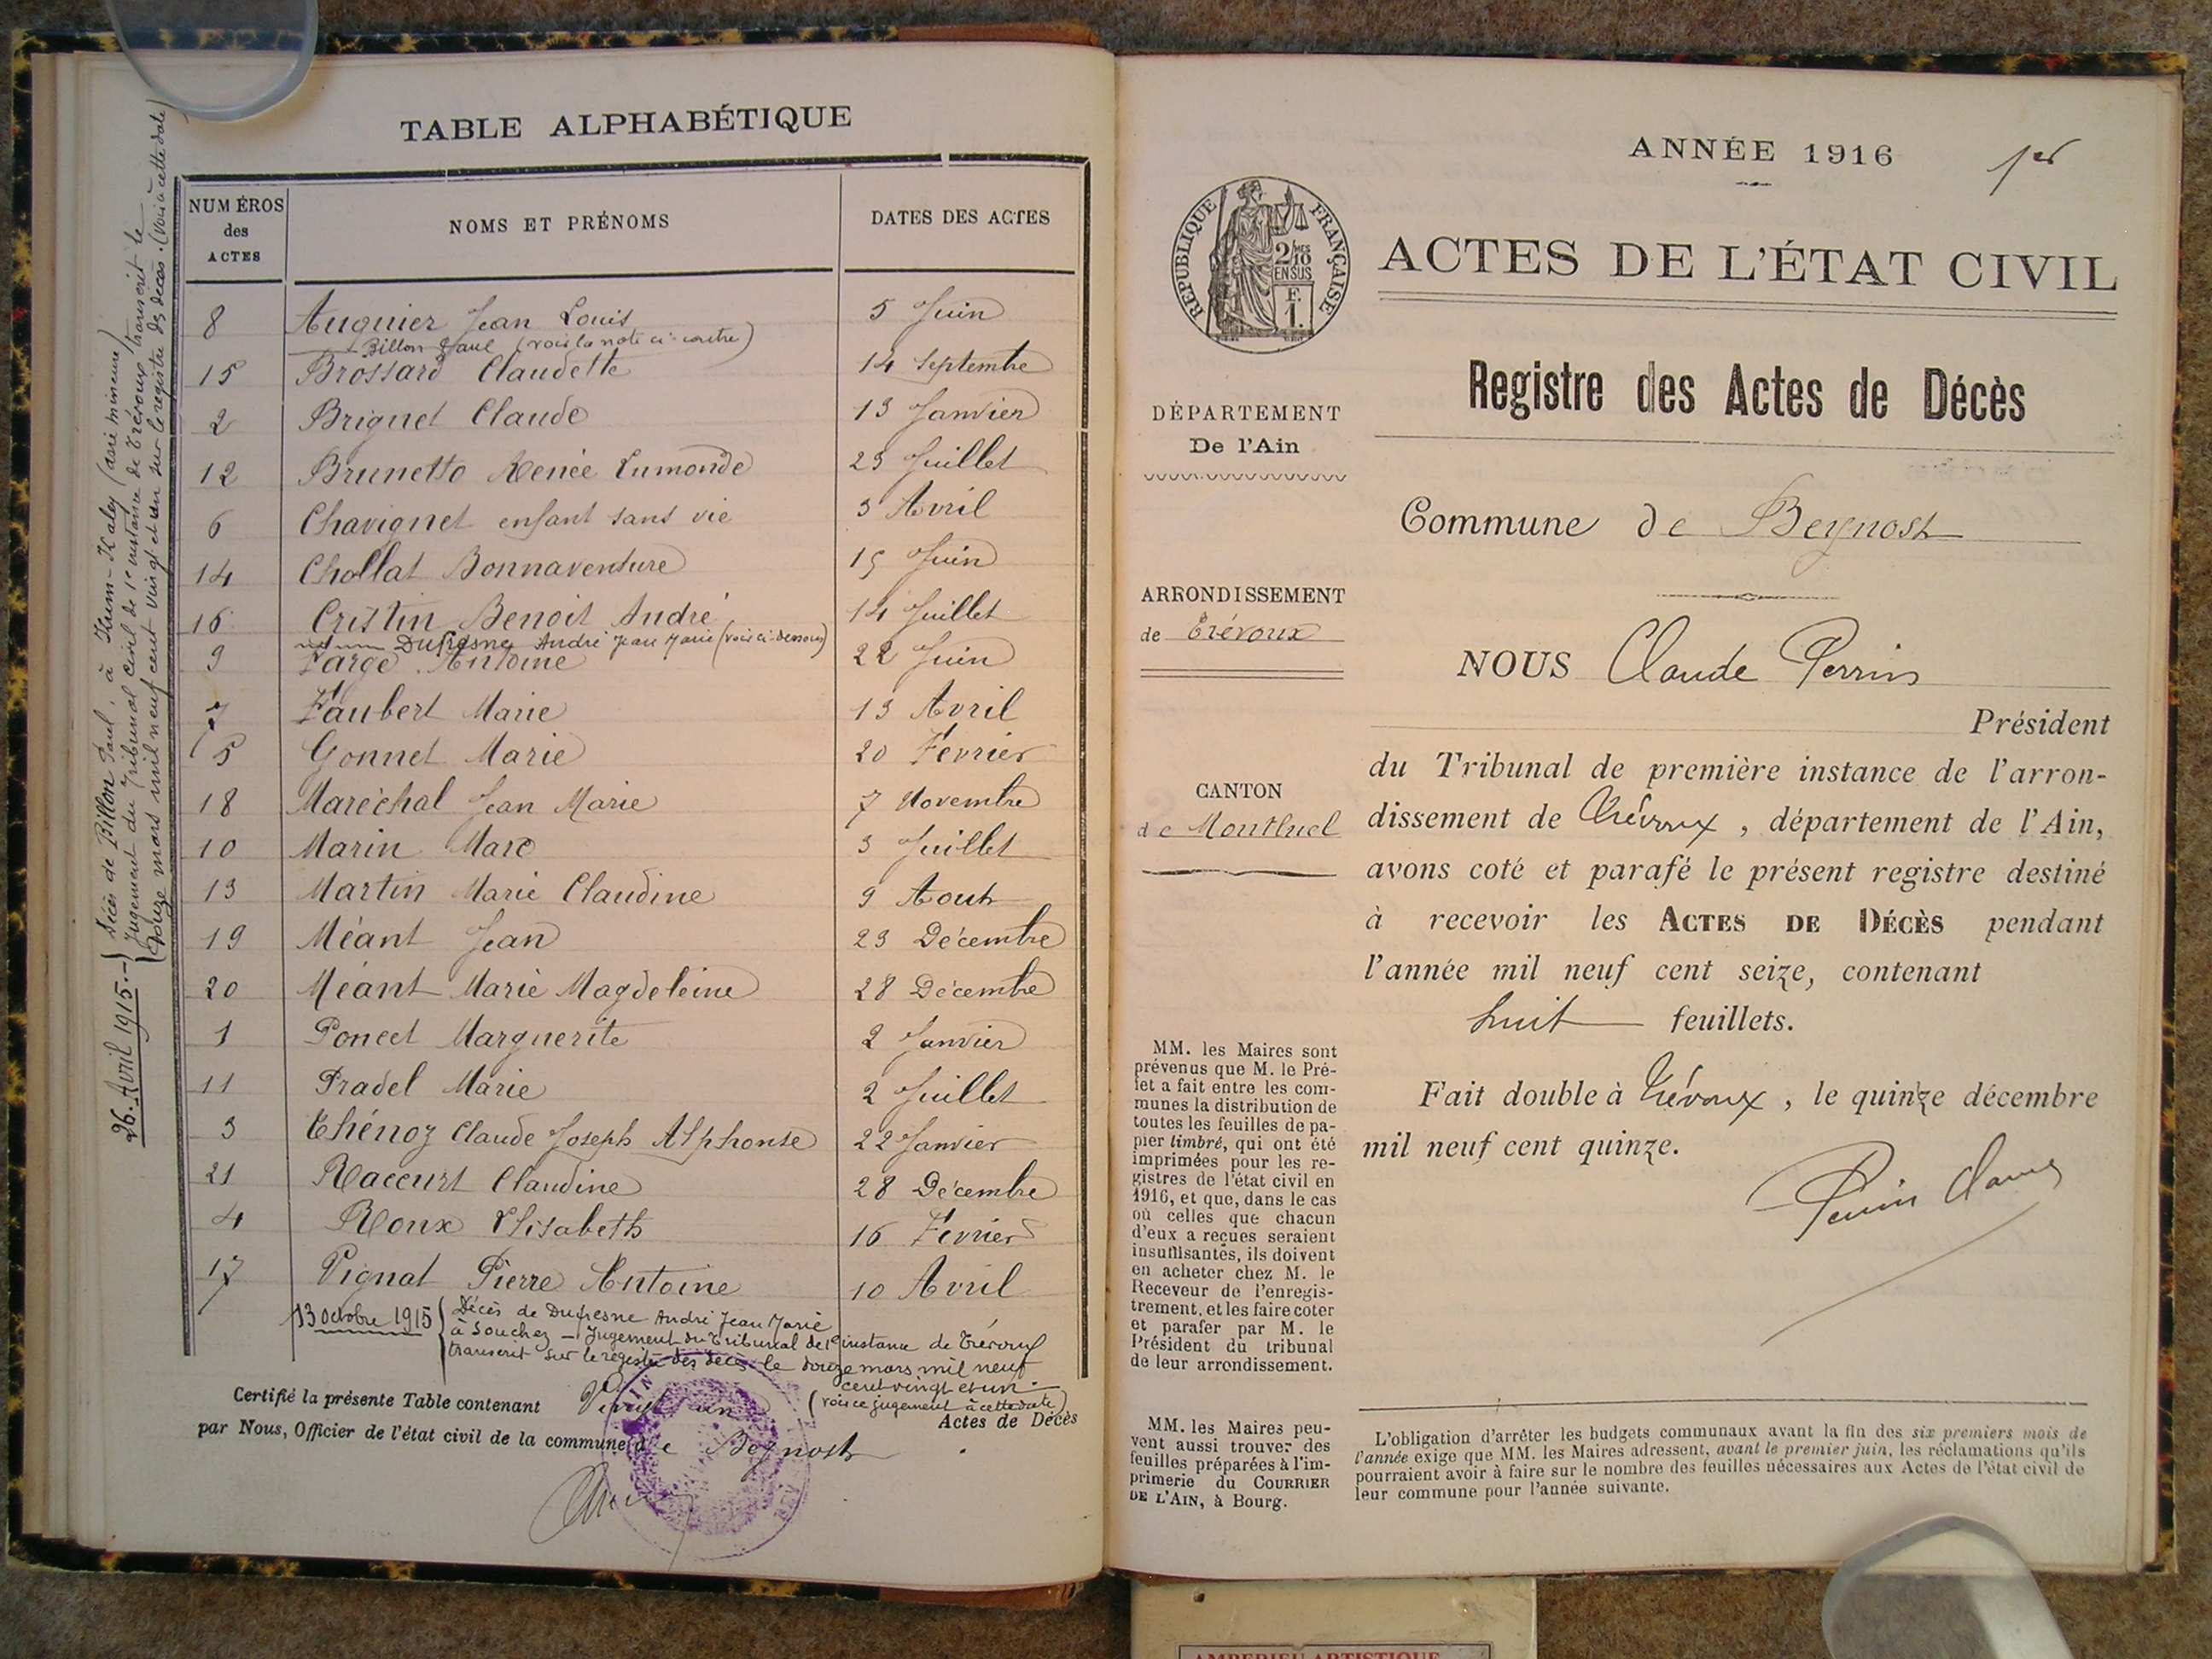 TABLE ALPHABÉTIQUE
NUMÉROS des ACTES | NOMS ET PRÉNOMS | DATES DES ACTES
8 Auquier Jean Louis 5 Juin
Billon Paul (voir la note ci-contre)
15 Brossard Claudette 14 Septembre
2 Brignet Claude 13 Janvier
12 Brunetto Renée Lumonde 23 Juillet
6 Chavignet enfant sans vie 3 Avril
14 Chollat Bonnaventure 15 Juin
16 Cristin Benoit André 14 Juillet
Dufresne André Jean Marie (voir ci-dessous)
9 Farge Antoine 22 Juin
7 Faubert Marie 13 Avril
5 Gonnet Marie 20 Fevrier
18 Maréchal Jean Marie 7 Novembre
10 Marin Marc 3 Juillet
13 Martin Marie Claudine 9 Aout
19 Méant Jean 23 Décembre
20 Méant Marie Magdeleine 28 Décembre
1 Poncet Marguerite 2 Janvier
11 Pradel Marie 2 Juillet
3 Thénoz Claude Joseph Alphonse 22 Janvier
21 Raccurt Claudine 28 Décembre
4 Roux Elisabeth 16 Fevrier
17 Vignat Pierre Antoine 10 Avril
13 octobre 1915 Décès de Dufresne André Jean Marie
à Souchez — Jugement du Tribunal de 1e instance de Trévoux
transcrit sur le registre des décès le douze mars mil neuf
cent vingt et un.
(voir ce jugement à cette date)
Certifié la présente Table contenant Vingt un Actes de Décès
par Nous, Officier de l'état civil de la commune de Beynost
26 Avril 1915.- Décès de Billon Paul, à Kum-Kaley (asie mineure)
Jugement du Tribunal civil de 1e instance de Trévoux, transcrit le
douze mars mil neuf cent vingt et un sur le registre des décès. (voir à cette date)
ANNÉE 1916
1er
RÉPUBLIQUE FRANÇAISE
2/10 MES
EN SUS
F.
1.
ACTES DE L'ÉTAT CIVIL
Registre des Actes de Décès
DÉPARTEMENT
De l'Ain
Commune de Beynost
ARRONDISSEMENT
de Trévoux
NOUS Claude Perrin
Président
CANTON
de Montluel
du Tribunal de première instance de l'arron-
dissement de Trévoux, département de l'Ain,
avons coté et parafé le présent registre destiné
à recevoir les ACTES DE DÉCÈS pendant
l'année mil neuf cent seize, contenant
huit feuillets.
Fait double à Trévoux, le quinze décembre
mil neuf cent quinze.
Perrin Claude
MM. les Maires sont
prévenus que M. le Pré-
fet a fait entre les com-
munes la distribution de
toutes les feuilles de pa-
pier timbré, qui ont été
imprimées pour les re-
gistres de l'état civil en
1916, et que, dans le cas
où celles que chacun
d'eux a reçues seraient
insuffisantes, ils doivent
en acheter chez M. le
Receveur de l'enregis-
trement, et les faire coter
et parafer par M. le
Président du tribunal
de leur arrondissement.
MM. les Maires peu-
vent aussi trouver des
feuilles préparées à l'im-
primerie du COURRIER
DE L'AIN, à Bourg.
L'obligation d'arrêter les budgets communaux avant la fin des six premiers mois de
l'année exige que MM. les Maires adressent, avant le premier juin, les réclamations qu'ils
pourraient avoir à faire sur le nombre des feuilles nécessaires aux Actes de l'état civil de
leur commune pour l'année suivante.
AMBERIEU ARTISTIQUE